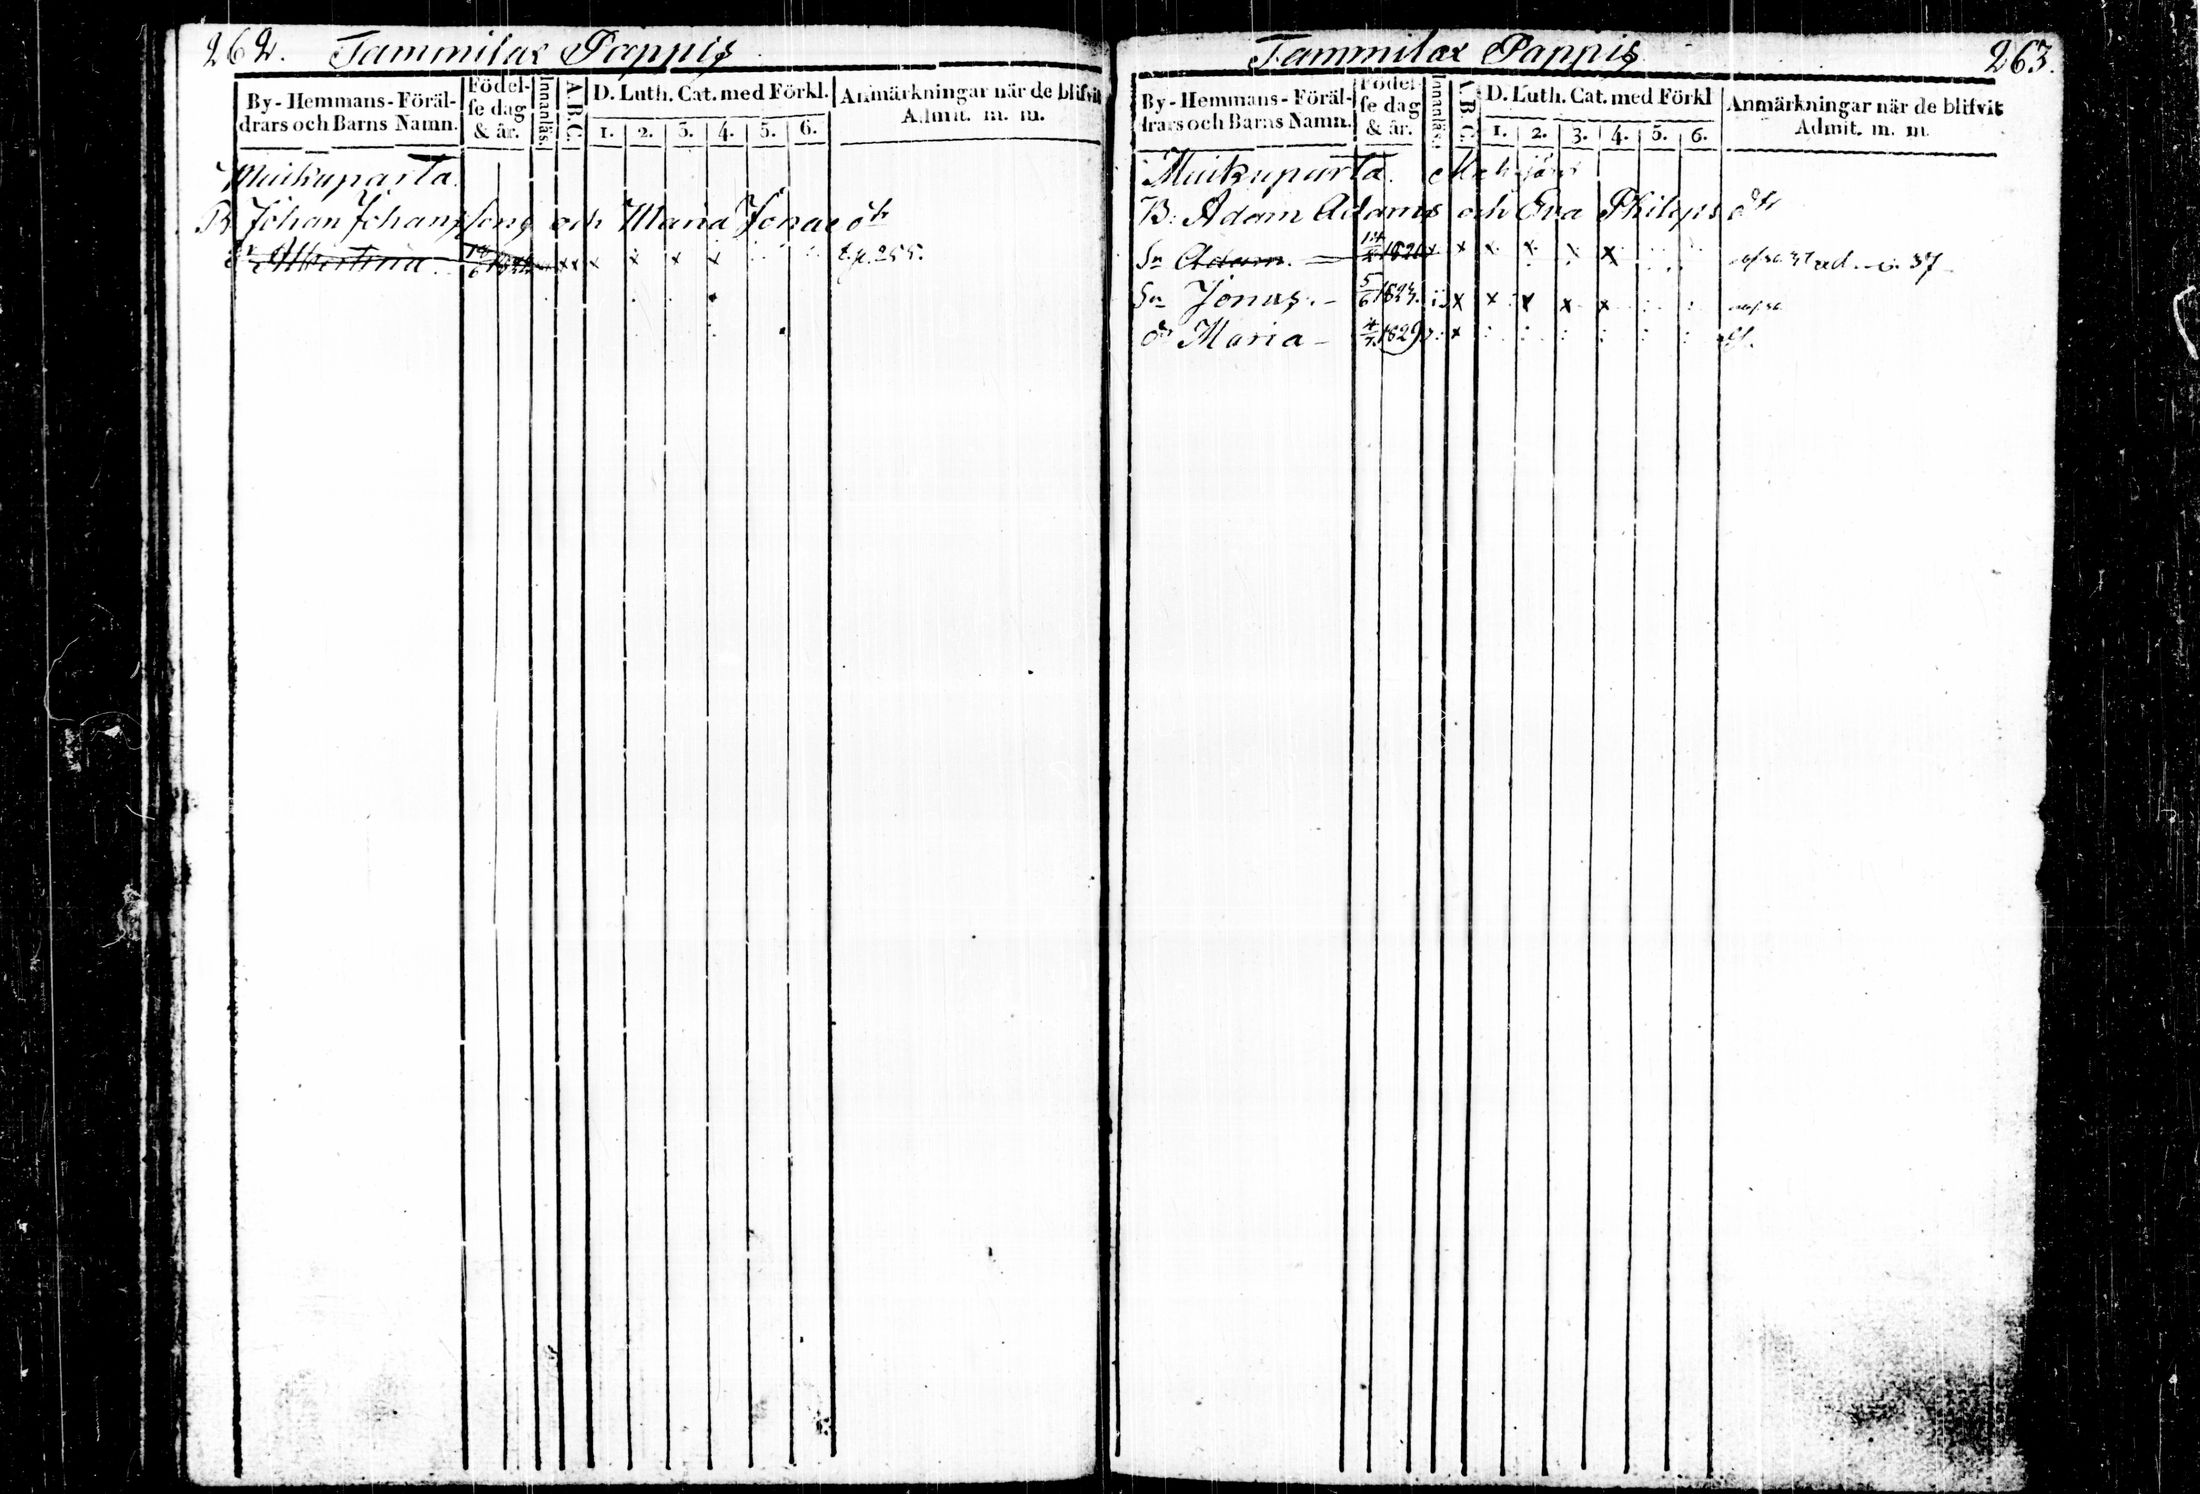 262. Tammilax Pappis
By-Hemmans-Föräl-
drars och Barns Namn.
Födel-
se dag
& år.
Innanläs.
A.B.C.
D. Luth. Cat. med Förkl.
1. 2. 3. 4. 5. 6.
Anmärkningar när de blifvit
Admit. m. m.
Muikuparta
B Johan Johansson och Maria Jonae dr
dr Albertina x x x x x x t. p. 255.
Tammilax Pappis 263.
By-Hemmans-Föräl-
drars och Barns Namn.
Födel-
se dag
& år.
Innanläs.
A.B.C.
D. Luth. Cat. med Förkl
1. 2. 3. 4. 5. 6.
Anmärkningar när de blifvit
Admit. m. m.
Muikuparta.
B: Adam Adams och Eva Philips dr
Sn Adam. 1820 x x x x x x 37
Sn Jonas. 5/6 x x x x x
dr Maria 4/7 1829 x